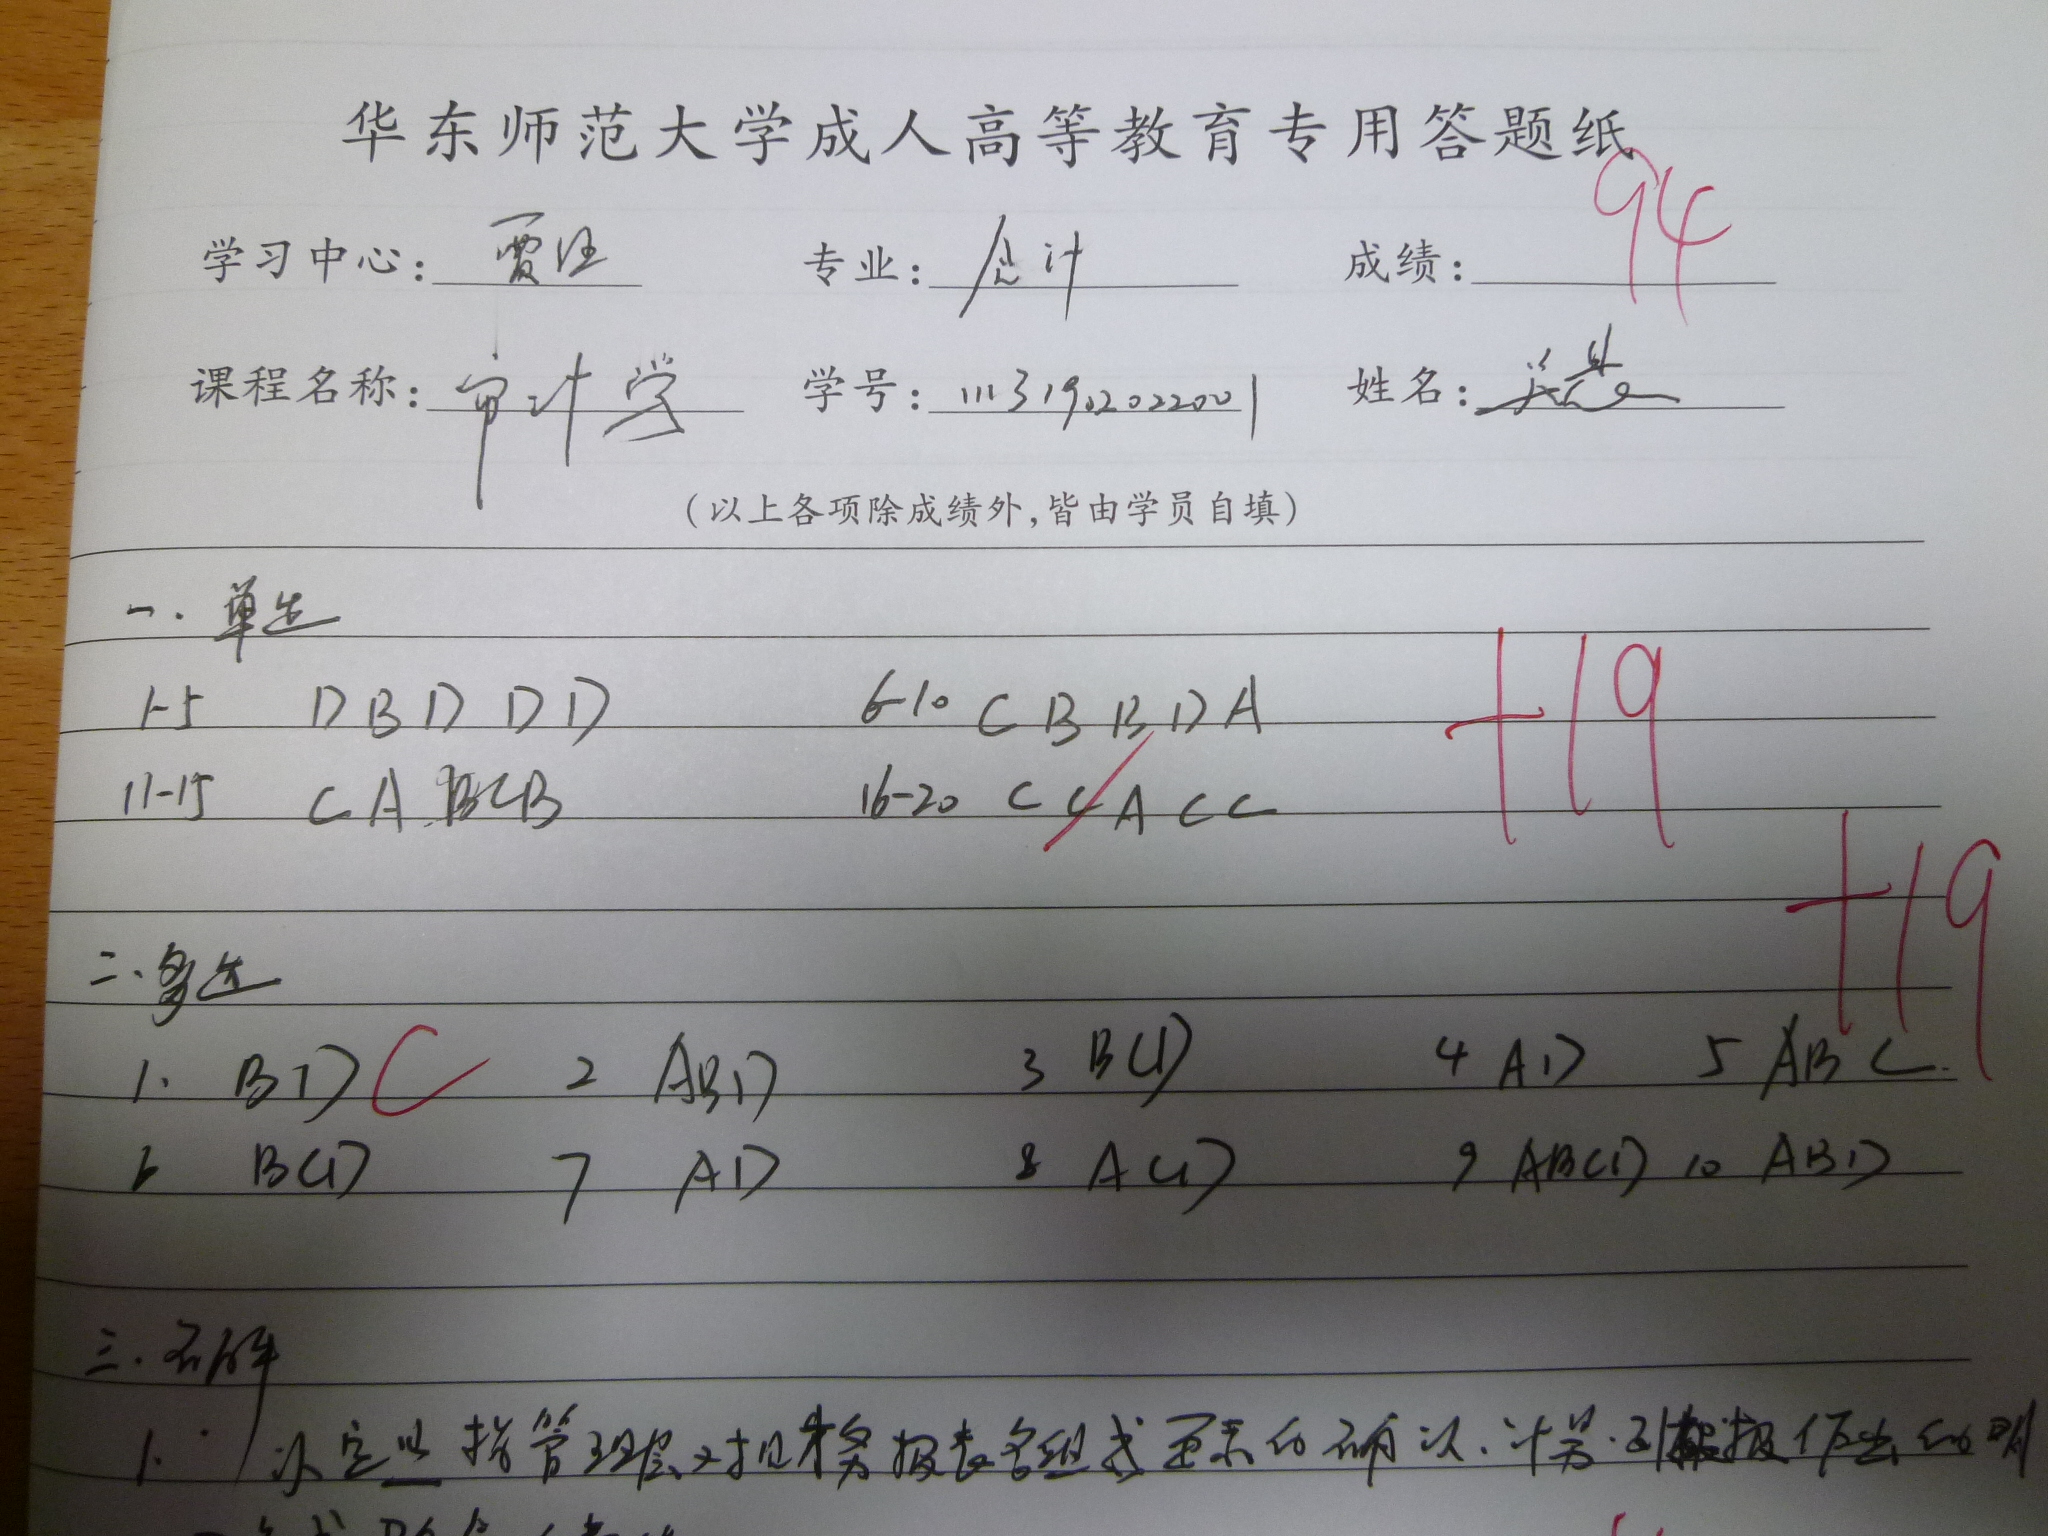 华东师范大学成人高等教育专用答题纸
学习中心: 贾汪 专业: 会计 成绩: 94
课程名称: 审计学 学号: 姓名: 吴
(以上各项除成绩外,皆由学员自填)
一. 单选
1-5 D B D D D 6-10 C B B D A +19
11-15 C A B C B 16-20 C C A C C
+19
二. 多选
1. BD C 2 ABD 3 BCD 4 AD 5 ABC.
6 BCD 7 AD 8 ACD 9 ABCD 10 ABD
三. 名解
1. 认定是指管理层对财务报表各组成要素的确认.计量.列报作出的明